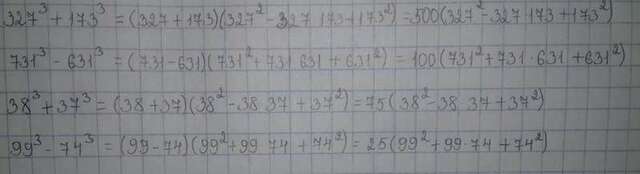 327³ + 173³ = (327 + 173)(327² - 327 173 + 173²) = 500(327² - 327 173 + 173²)
731³ - 631³ = (731 - 631)(731² + 731 631 + 631²) = 100(731² + 731 · 631 + 631²)
38³ + 37³ = (38 + 37)(38² - 38 37 + 37²) = 75(38² - 38 37 + 37²)
99³ - 74³ = (99 - 74)(99² + 99 74 + 74²) = 25(99² + 99 · 74 + 74²)